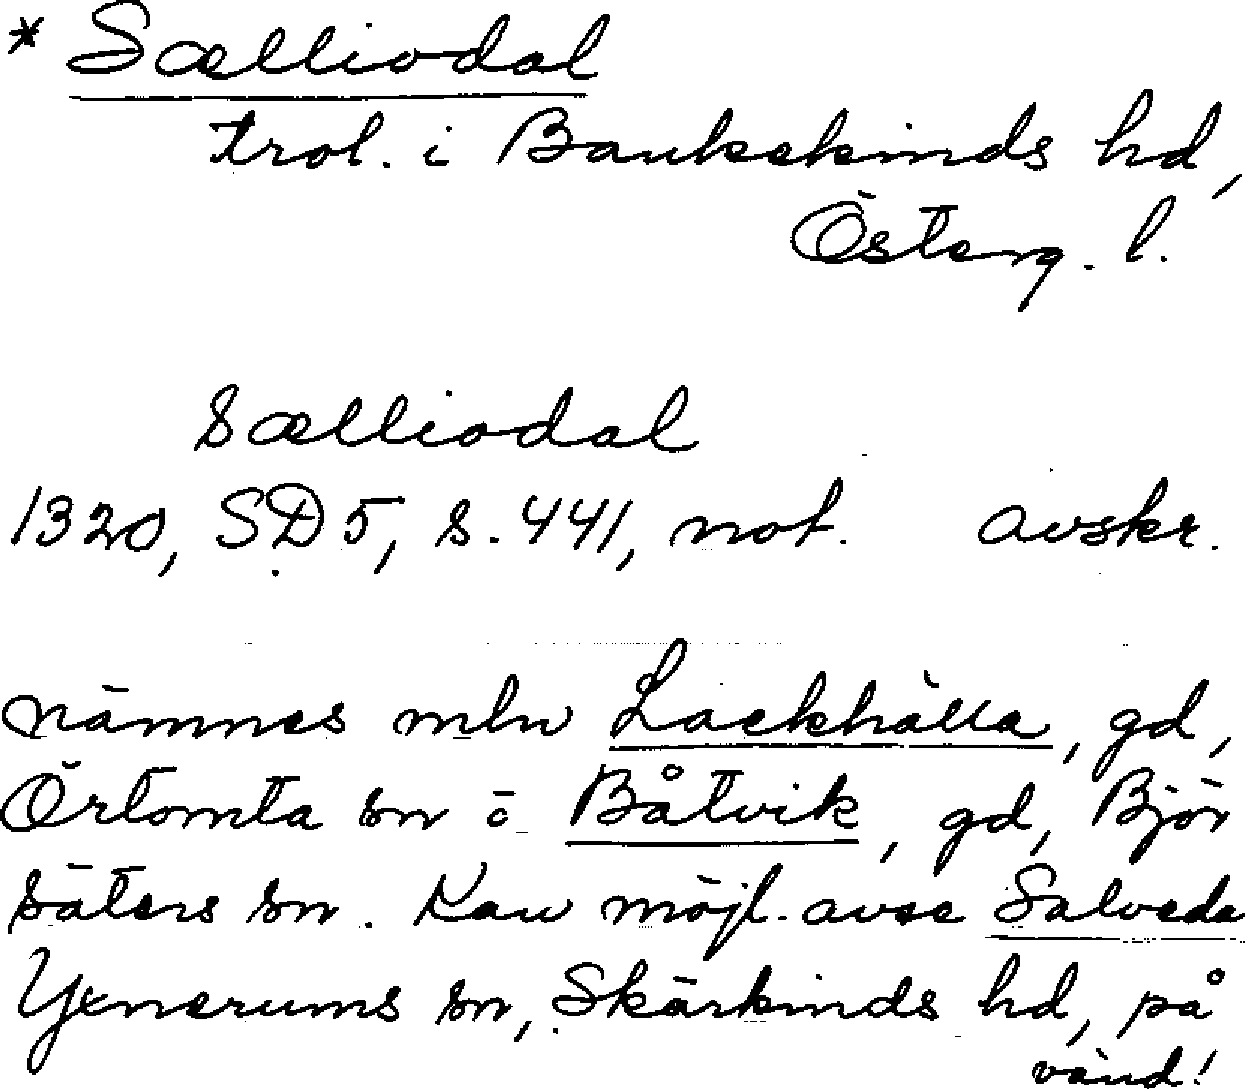 * Sælliodal
trol. i Bankekinds hd,
Österg. l.
Sælliodal
1320, SD 5, s. 441, not. avskr.
nämnes mln Lackhälla, gd,
Örtomta sn o Båtvik, gd, Björ
säters sn. Kan möjl. avse Salveda
Yxnerums sn, Skärkinds hd, på
vänd!